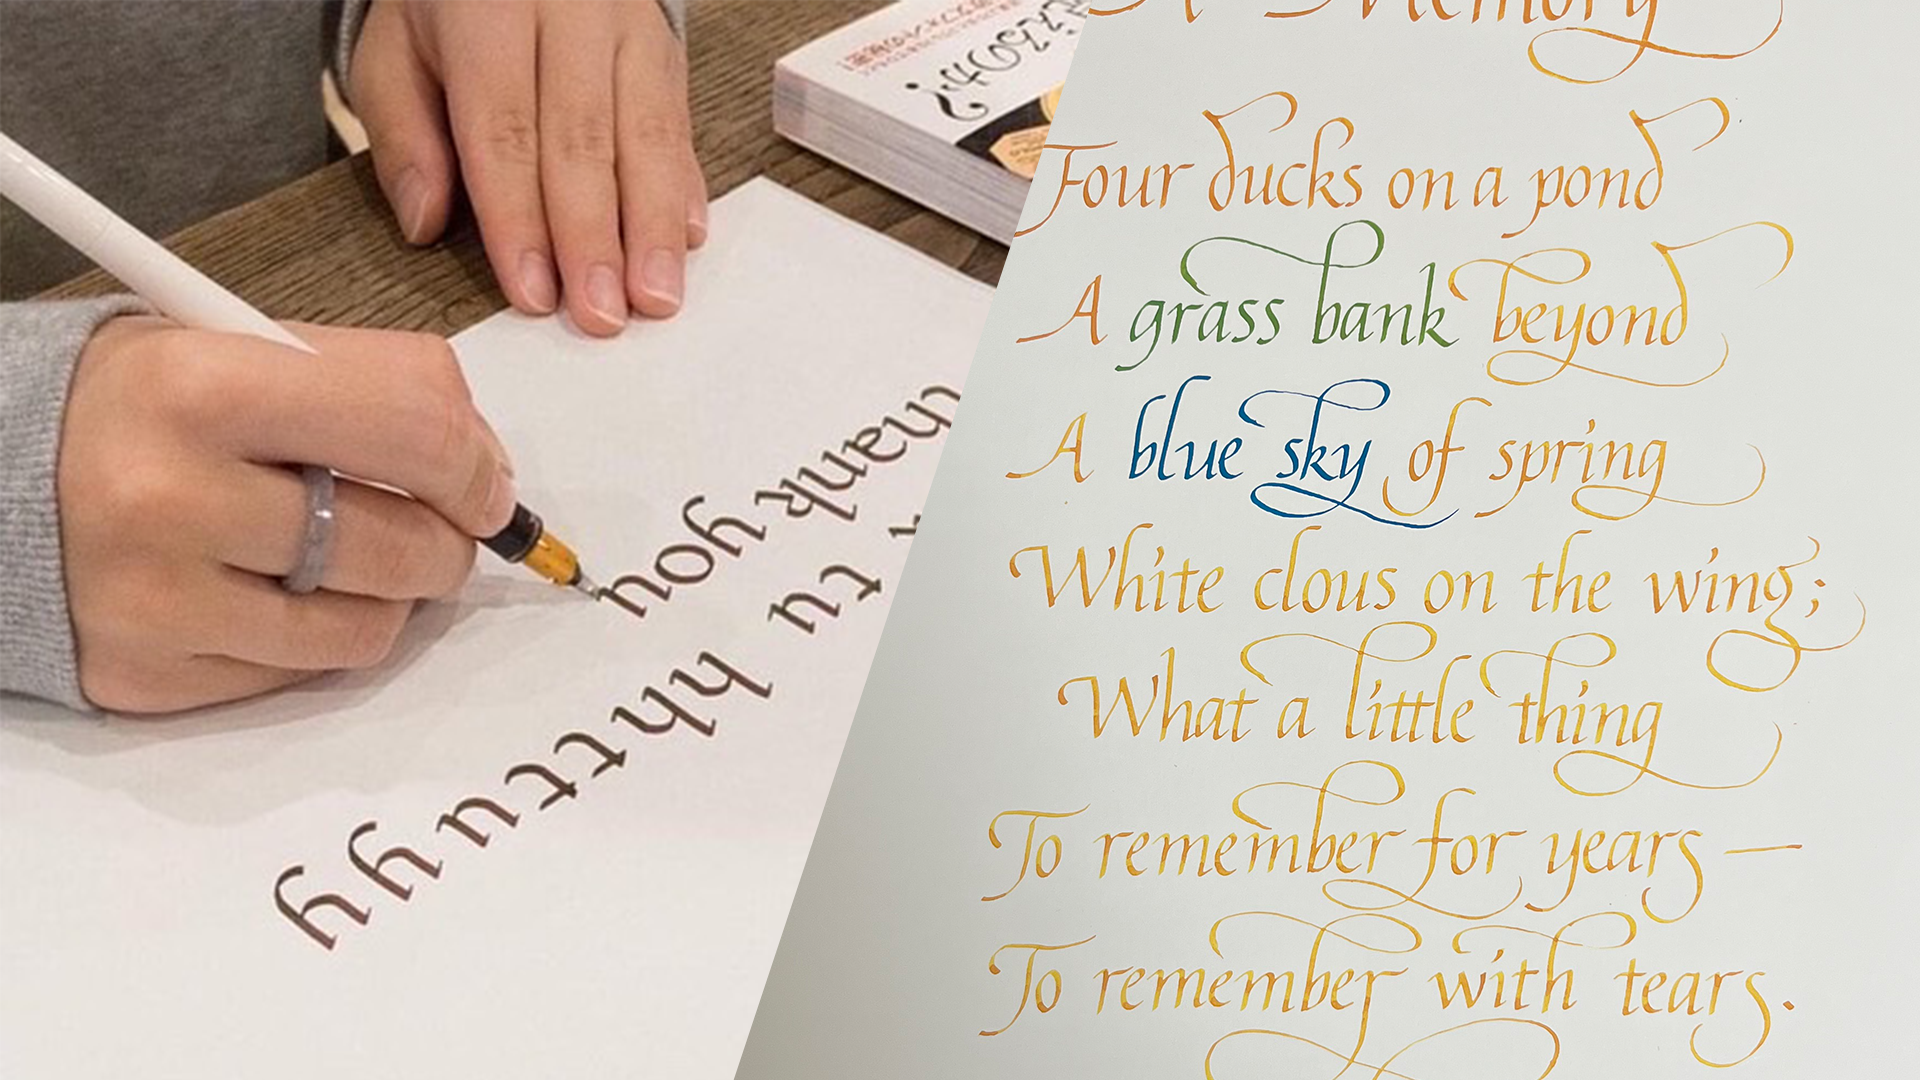 thank you
tu hhttuyy
A Memory
Four ducks on a pond
A grass bank beyond
A blue sky of spring
White clous on the wing;
What a little thing
To remember for years —
To remember with tears.